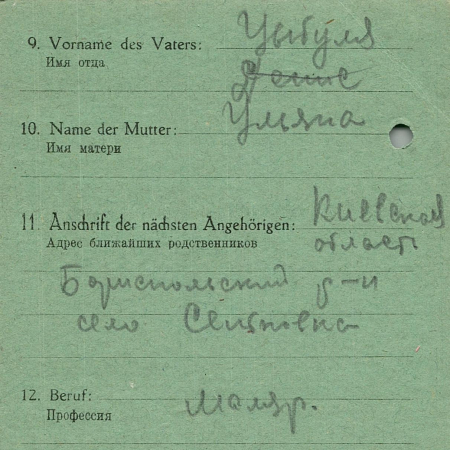 9. Vorname des Vaters: Цыбуля
Имя отца Денис
10. Name der Mutter: Ульяна
Имя матери
11. Anschrift der nächsten Angehörigen: Киевская
Адрес ближайших родственников область
Бориспольский р-н
село
12. Beruf: Маляр.
Профессия